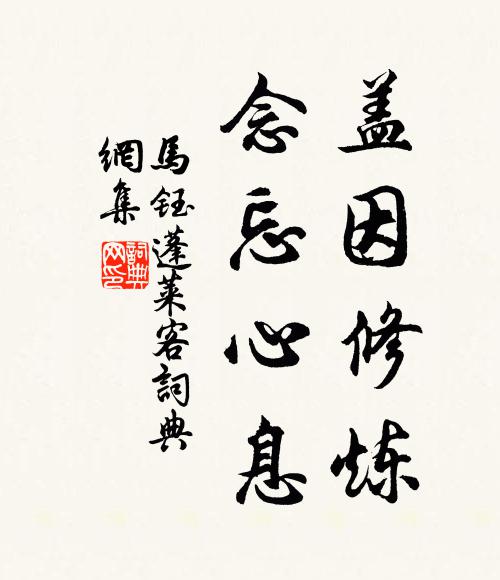 盖因修炼
念忘心息
馬鈺蓬萊客詞典
網集
詞典
网印